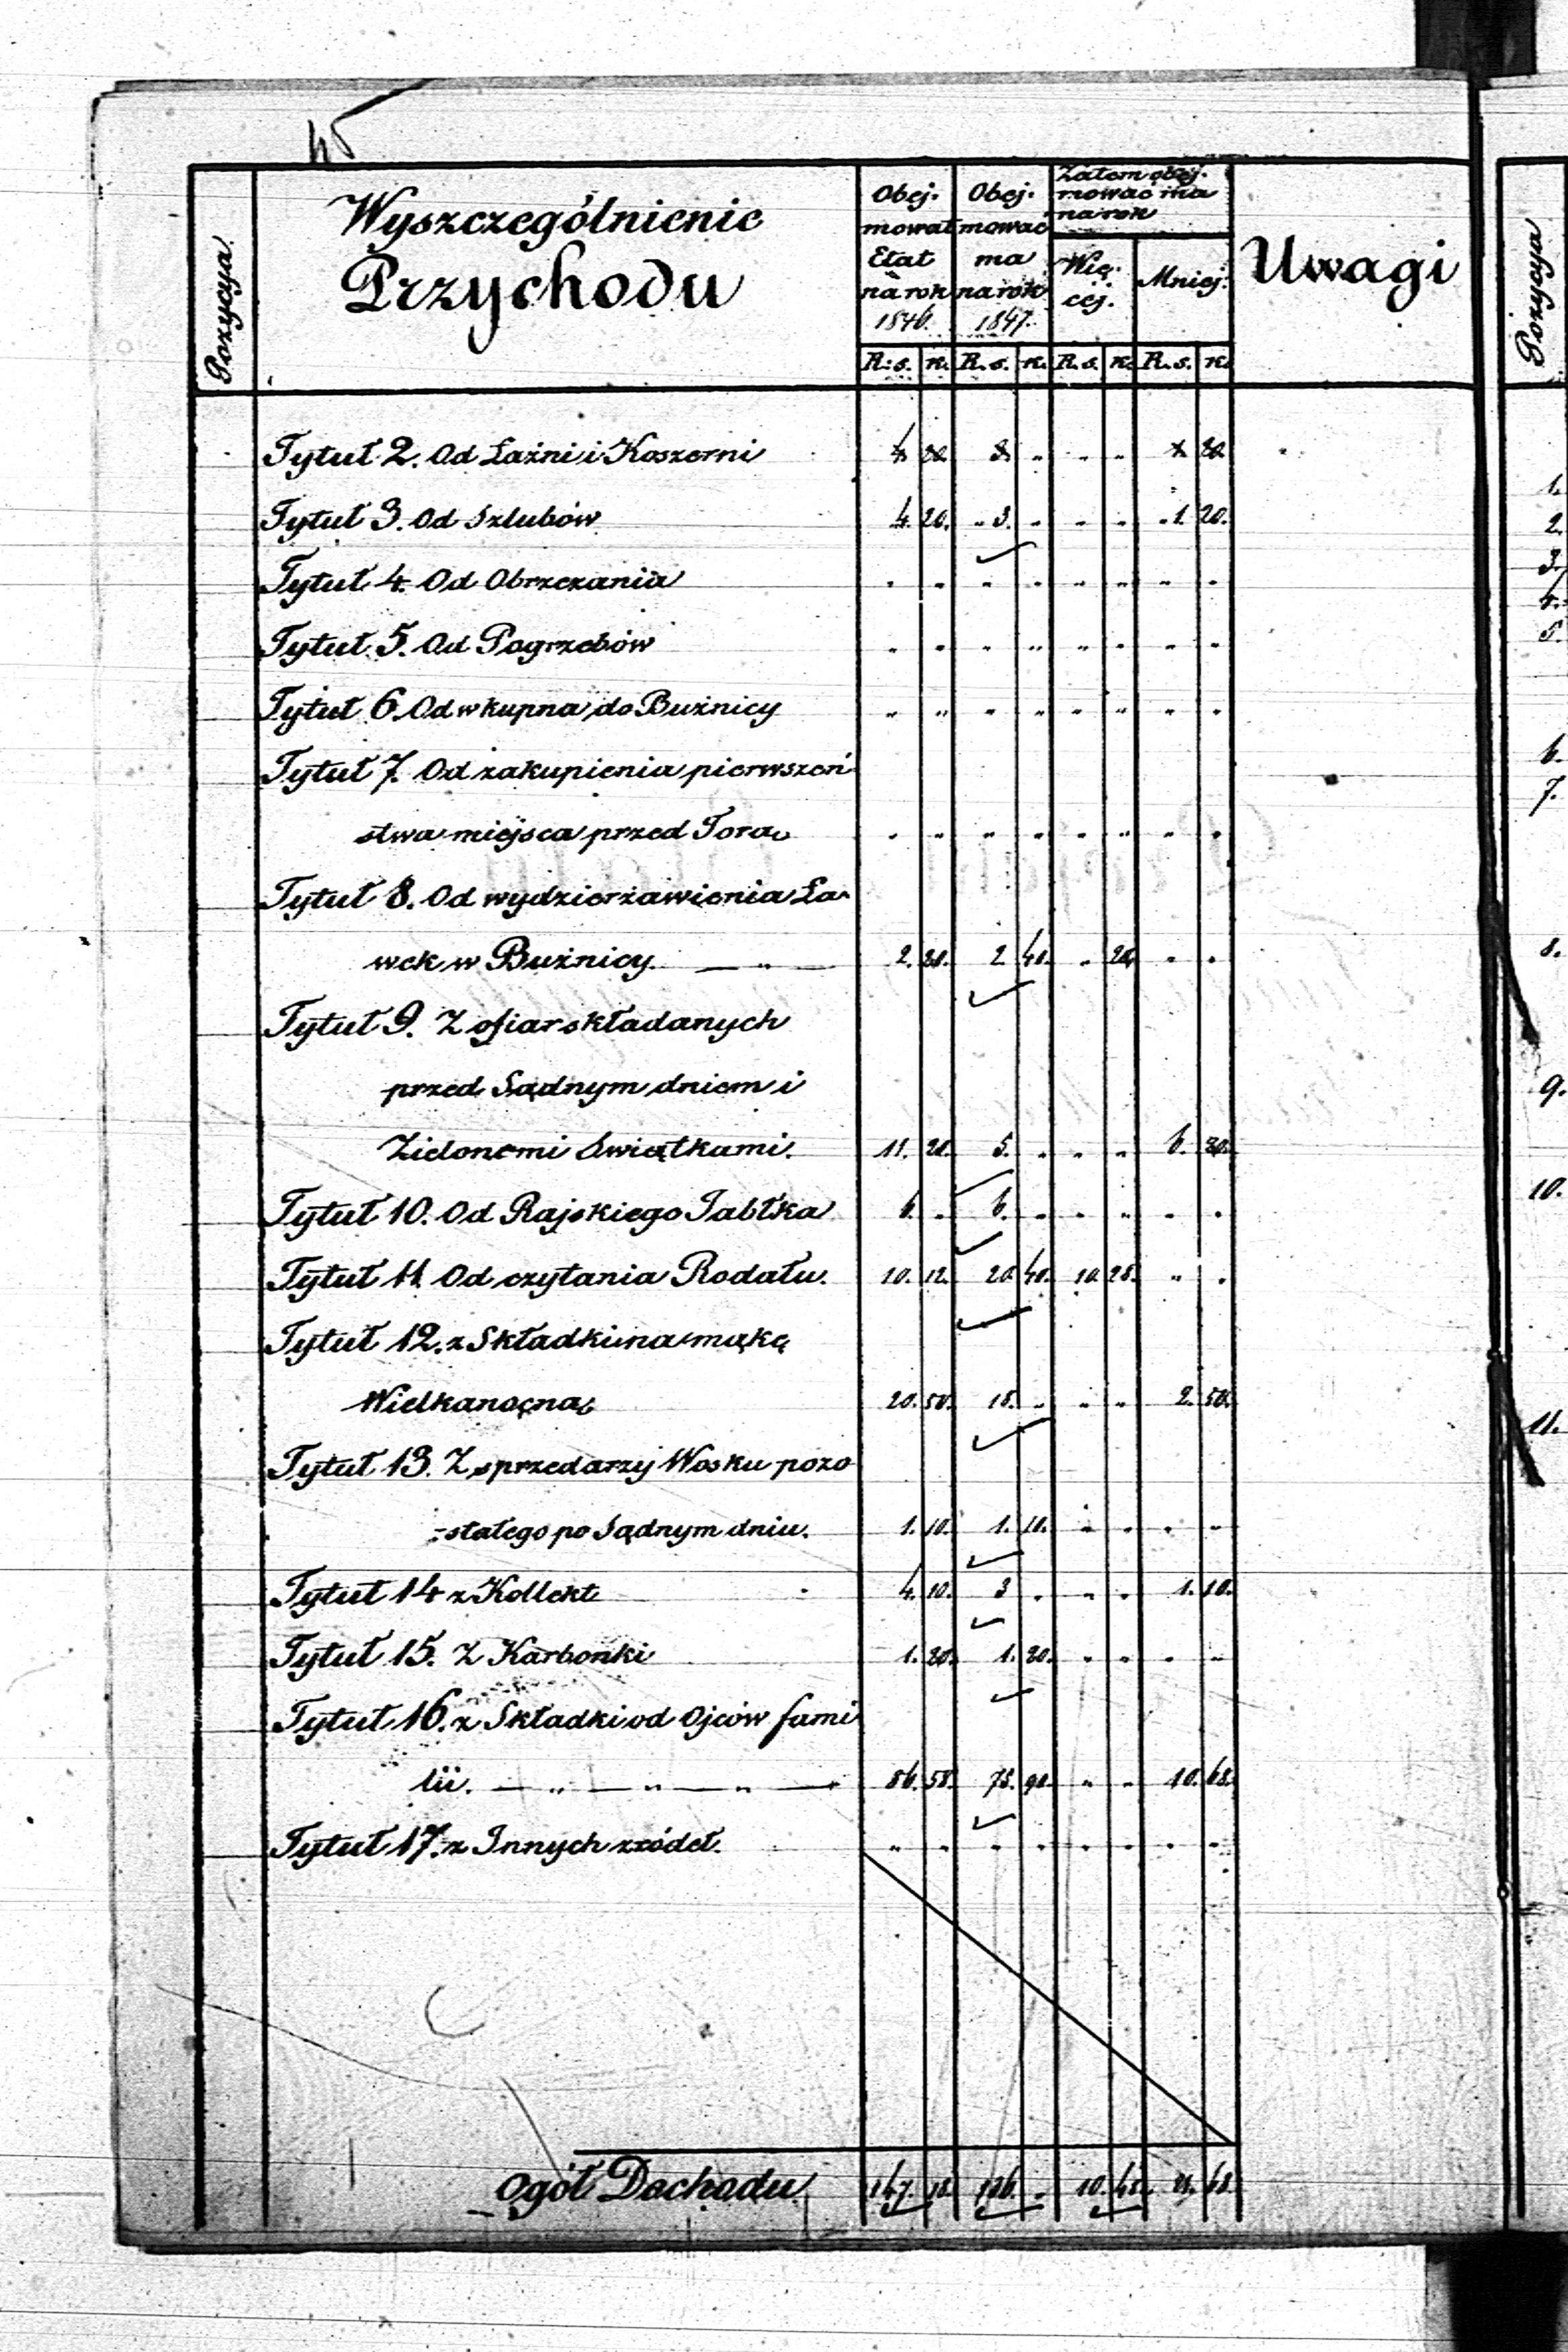 Pozycya
Wyszczególnienie
Przychodu
Obej-
mował
Etat
na rok
1846.
Obej-
mować
ma
na rok
1847.
Zatem obej-
mować ma
na rok
Wię-
cej.
Mniej.
Uwagi
Pozycya
R. s. k. R. s. k. R. s. k. R. s. k.
Tytuł 2. Od Łaźni i Koszerni
Tytuł 3. Od Szlubów 4. 20. " 3. " " " 1. 20.
Tytuł 4. Od Obrzezania " " " " " " " "
Tytuł 5. Od Pogrzebów " " " " " " " "
Tytuł 6. Od wkupna do Bużnicy " " " " " " " "
Tytuł 7. Od zakupienia pierwszeń
stwa miejsca przed Torą " " " " " " " "
Tytuł 8. Od wydzierżawienia Ła-
wek w Bużnicy. — " — 2. 20. 2. 40. " 20. " "
Tytuł 9. Z ofiar składanych
przed Sądnym dniem i
Zielonemi Świątkami. 11. 5. " " " 6.
Tytuł 10. Od Rajskiego Jabłka 6. " 6. " " " " "
Tytuł 11. Od czytania Rodału. 10. 12. 20. 40. 10. 28. " "
Tytuł 12. z Składki na mąkę
Wielkanocną 20. 50. 18. " " " 2. 50.
Tytuł 13. Z sprzedarzy Wosku pozo
-stałego po Sądnym dniu. 1. 10. 1. 10. " " " "
Tytuł 14 z Kollekt 4. 10. 3 " " " 1. 10.
Tytuł 15. Z Karbonki 1. 20. 1. 20. " " " "
Tytuł 16. z Składki od Ojców fami
lii. — " — " — " — 86. 58. 75. 90. " " 10. 68.
Tytuł 17. z Innych źródeł. " " " " " " " "
Ogół Dochodu 147. 18. 136. " 10. 48. 21.
1.
2.
3.
4.
5.
6.
7.
8.
9.
10.
11.